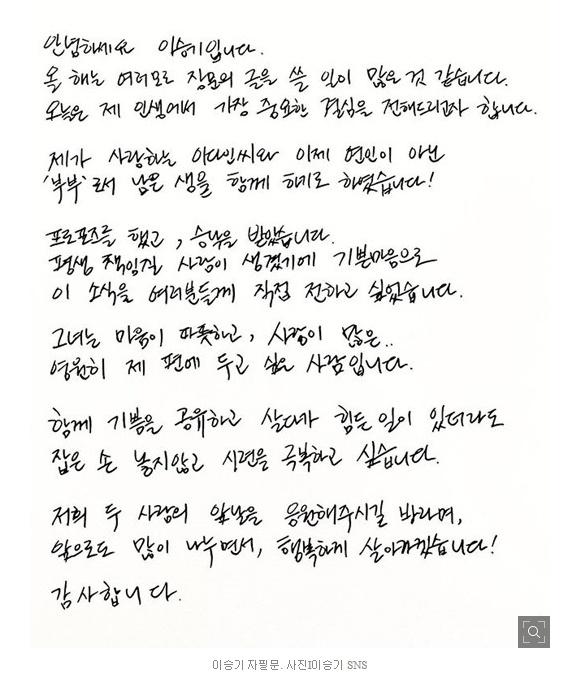 안녕하세요 이승기입니다.
올 해는 여러모로 장문의 글을 쓸 일이 많은 것 같습니다.
오늘은 제 인생에서 가장 중요한 결심을 전해드리고자 합니다.
제가 사랑하는 이다인씨와 이제 연인이 아닌
'부부'로서 남은 생을 함께 하기로 하였습니다!
프로포즈를 했고, 승낙을 받았습니다.
평생 책임질 사람이 생겼기에 기쁜마음으로
이 소식을 여러분들께 직접 전하고 싶었습니다.
그녀는 마음이 따뜻하고, 사랑이 많은..
영원히 제 편에 두고 싶은 사람입니다.
함께 기쁨을 공유하고 살다가 힘든 일이 있더라도
잡은 손 놓지않고 시련을 극복하고 싶습니다.
저희 두 사람의 앞날을 응원해주시길 바라며,
앞으로도 많이 나누면서, 행복하게 살아가겠습니다!
감사합니다.
이승기 자필문. 사진I이승기 SNS